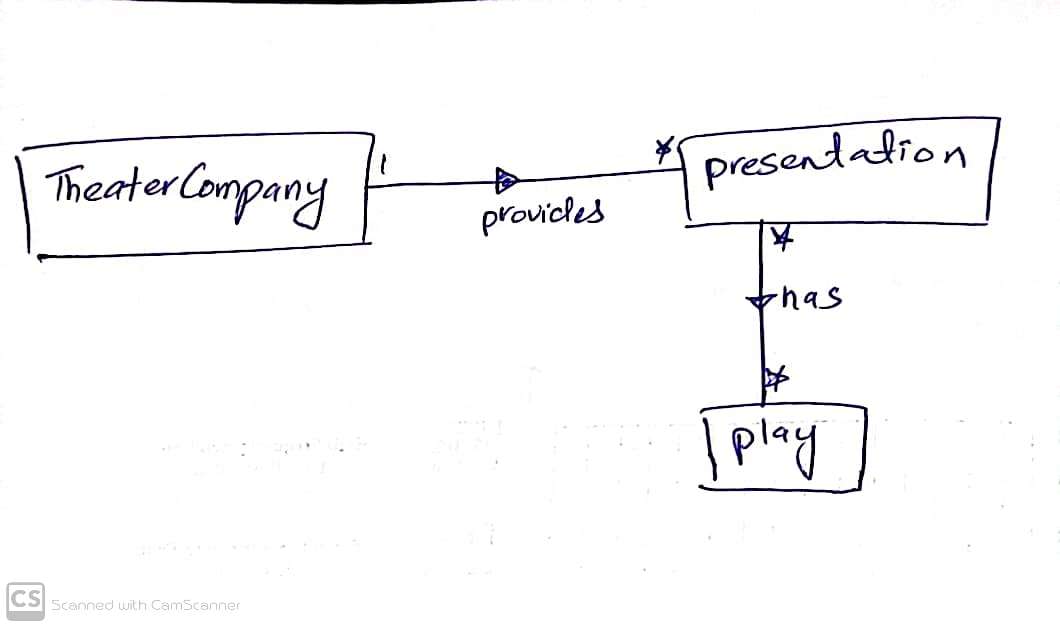 TheaterCompany
1
provides
*
presentation
*
has
*
play
CS Scanned with CamScanner